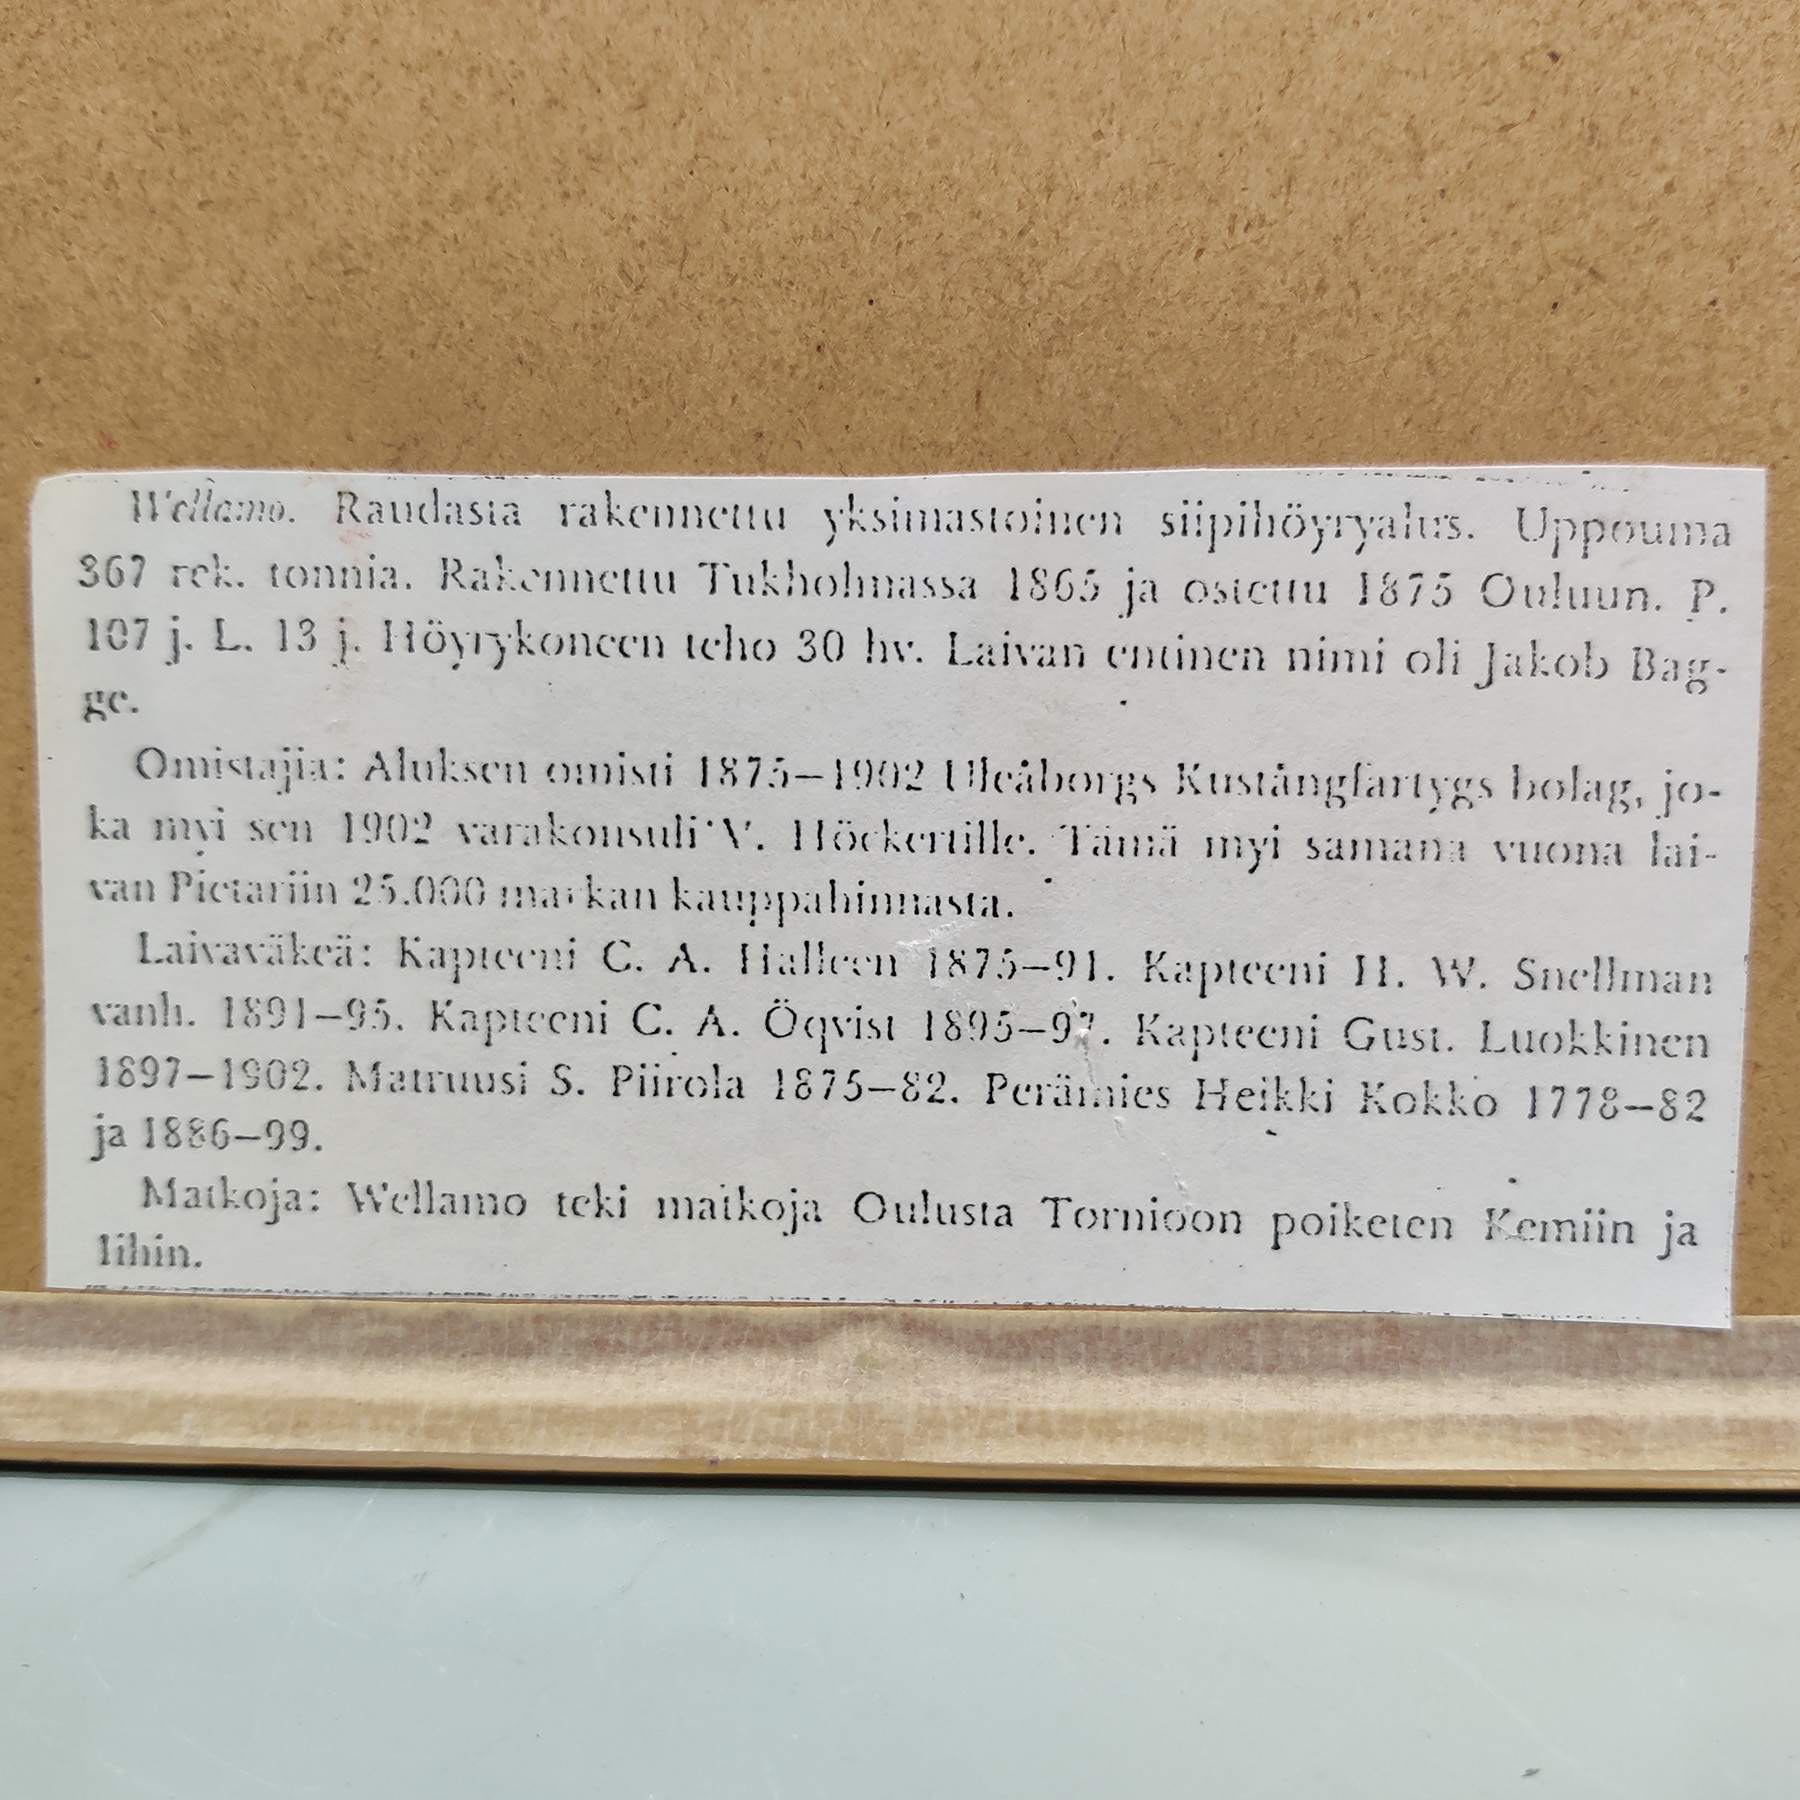 Wellamo. Raudasta rakennettu yksimastoinen siipihöyryalus. Uppouma
367 rek. tonnia. Rakennettu Tukholmassa 1865 ja ostettu 1875 Ouluun. P.
107 j. L. 13 j. Höyrykoneen teho 30 hv. Laivan entinen nimi oli Jakob Bag-
ge.
Omistajia: Aluksen omisti 1875–1902 Uleåborgs Kustångfartygs bolag, jo-
ka myi sen 1902 varakonsuli V. Höckertille. Tämä myi samana vuona lai-
van Pietariin 25.000 markan kauppahinnasta.
Laivaväkeä: Kapteeni C. A. Halleen 1875–91. Kapteeni H. W. Snellman
vanh. 1891–95. Kapteeni C. A. Öqvist 1895–97. Kapteeni Gust. Luokkinen
1897–1902. Matruusi S. Piirola 1875–82. Perämies Heikki Kokko 1778–82
ja 1886–99.
Matkoja: Wellamo teki matkoja Oulusta Tornioon poiketen Kemiin ja
Iihin.